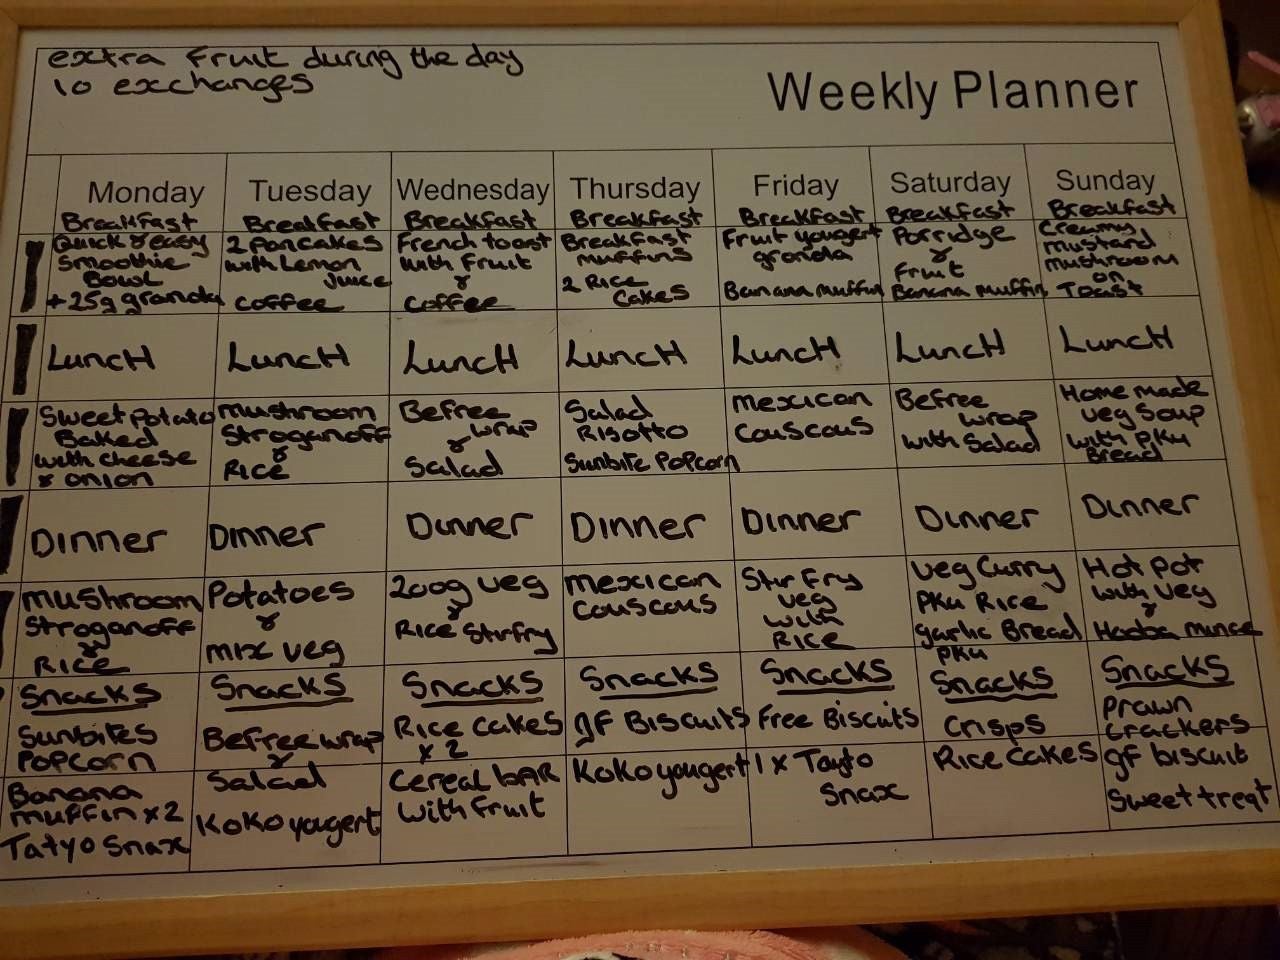 extra Fruit during the day
10 exchanges
Weekly Planner
Monday
Breakfast
Quick & easy
Smoothie
Bowl
+ 25g granola
Lunch
Sweet potato
Baked
with cheese
& onion
Dinner
mushroom
Stroganoff
&
Rice
Snacks
Sunbites
Popcorn
Banana
muffin x2
Tatyo Snax
Tuesday
Breakfast
2 Pancakes
with Lemon
Juice
Coffee
Lunch
mushroom
Stroganoff
&
Rice
Dinner
Potatoes
&
mix veg
Snacks
Befree wrap
&
Salad
Koko yougert
Wednesday
Breakfast
French toast
with Fruit
&
Coffee
Lunch
Befree
wrap
&
Salad
Dinner
200g veg
&
Rice Stirfry
Snacks
Rice Cakes
x 2
Cereal bar
with fruit
Thursday
Breakfast
Breakfast
muffins
2 Rice
Cakes
Lunch
Salad
Risotto
Sunbite Popcorn
Dinner
mexican
Couscous
Snacks
gF Biscuits
Koko yougert
Friday
Breakfast
Fruit yougert
granola
Banana muffin
Lunch
mexican
Couscous
Dinner
Stir Fry
veg
with
Rice
Snacks
Free Biscuits
1 x Tayto
Snax
Saturday
Breakfast
Porridge
&
Fruit
Banana muffin
Lunch
Befree
wrap
with Salad
Dinner
veg Curry
PKU Rice
garlic Bread
PKU
Snacks
Crisps
Rice Cakes
Sunday
Breakfast
Creamy
mustard
mushroom
on
Toast
Lunch
Home made
veg soup
with PKU
Bread
Dinner
Hot Pot
with veg
&
Hooba mince
Snacks
Prawn
Crackers
gf biscuit
Sweet treat